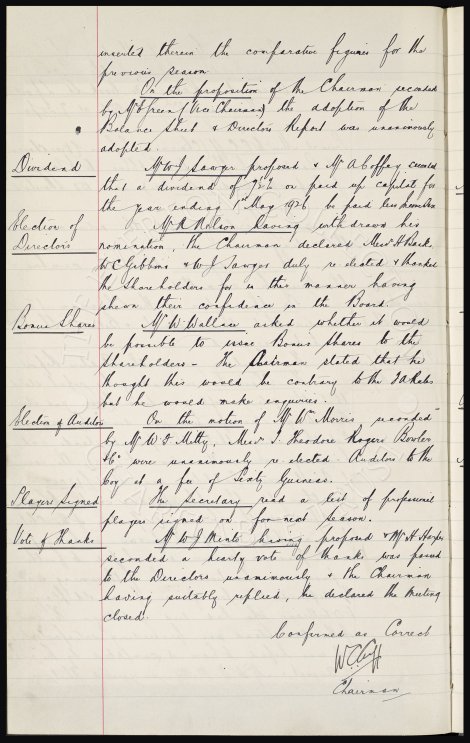 inserted therein the comparative figures for the
previous season.
On the proposition of the Chairman seconded
by Mr Green (Vice Chairman) the adoption of the
Balance Sheet & Directors Report was unanimously
adopted.
Dividend
Mr W J Sawyer proposed & Mr A Coffey
that a dividend of on paid up capital for
the year ending 1st May 1926 be paid less Income Tax
Election of
Directors
Mr R Wilson having withdrawn his
nomination the Chairman declared Messrs H
W C Gibbins & W J Sawyer duly re elected & thanked
the Shareholders for in this manner having
shewn their confidence in the Board.
Bonus Shares
Mr W. Wallace asked whether it would
be possible to issue Bonus Shares to the
Shareholders - The Chairman stated that he
thought this would be contrary to the F A Rules
but he would make enquiries.
Election of Auditors
On the motion of Mr Wm Morris, seconded
by Mr W F Messrs J. Theodore Rogers Bowler
& Co were unanimously re elected Auditors to the
Coy at a fee of Sixty Guineas.
Players Signed
The Secretary read a list of professional
players signed on for next season.
Vote of Thanks
Mr W J having proposed & Mr H
seconded a hearty vote of thanks was passed
to the Directors unanimously & the Chairman
having suitably replied, he declared the Meeting
closed.
Confirmed as Correct
W C Cuff
Chairman